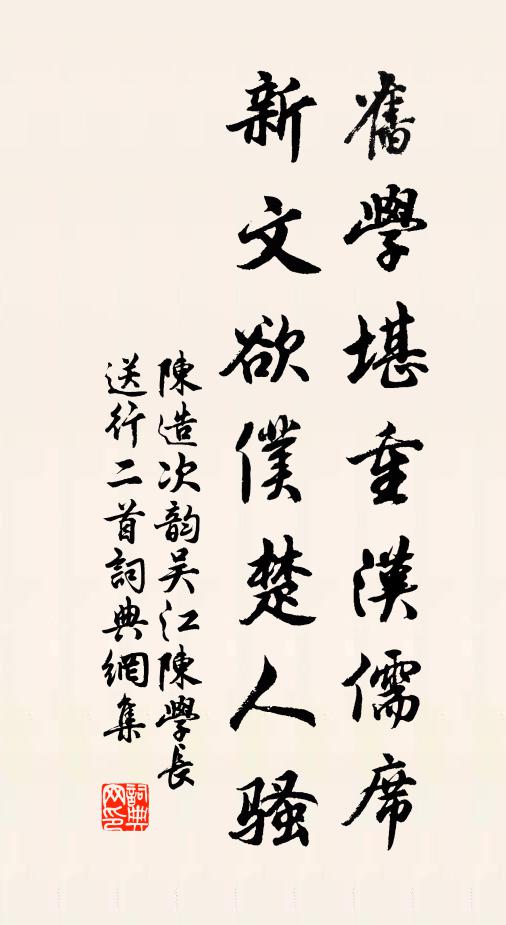 舊學堪重漢儒席
新文欲僕楚人騷
陳造次韵吴江陳學長
送行二首詞典網集
詞典
网印